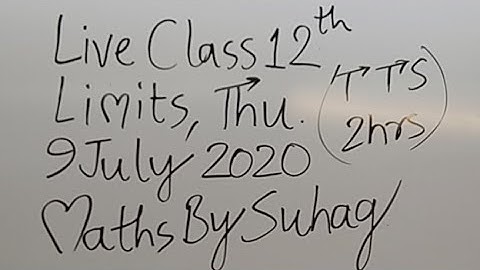 Live Class 12th
Limits, Thu.
(TTS
2hrs)
9 July 2020
Maths By Suhag